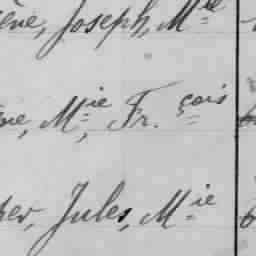 ène, Joseph, M^ie
ne, M^ie, Fr.^çois
er, Jules, M^ie